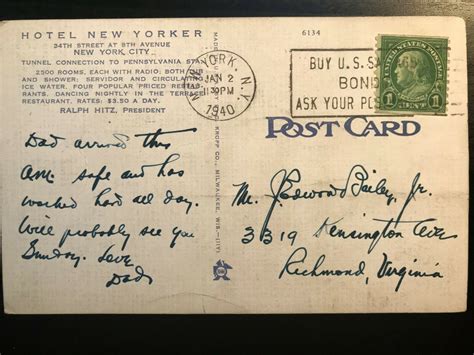 HOTEL NEW YORKER
34TH STREET AT 8TH AVENUE
NEW YORK CITY
TUNNEL CONNECTION TO PENNSYLVANIA STA
2500 ROOMS, EACH WITH RADIO; BOTH TUB
AND SHOWER; SERVIDOR AND CIRCULATING
ICE WATER. FOUR POPULAR PRICED RESTAU-
RANTS. DANCING NIGHTLY IN THE TERRACE
RESTAURANT. RATES: $3.50 A DAY.
RALPH HITZ, PRESIDENT
6134
NEW YORK, N.Y.
JAN 2
PM
1940
BUY U.S. SA
BOND
ASK YOUR POS
UNITED STATES POSTAGE
1 CENT 1
KROPP CO., MILWAUKEE, WIS.
POST CARD
Dad arrived this
am. safe and has
worked hard all day.
Will probably see you
Sunday. Love
Dad
Mr. J Edward Bailey, Jr.
3319 Kensington Ave
Richmond, Virginia